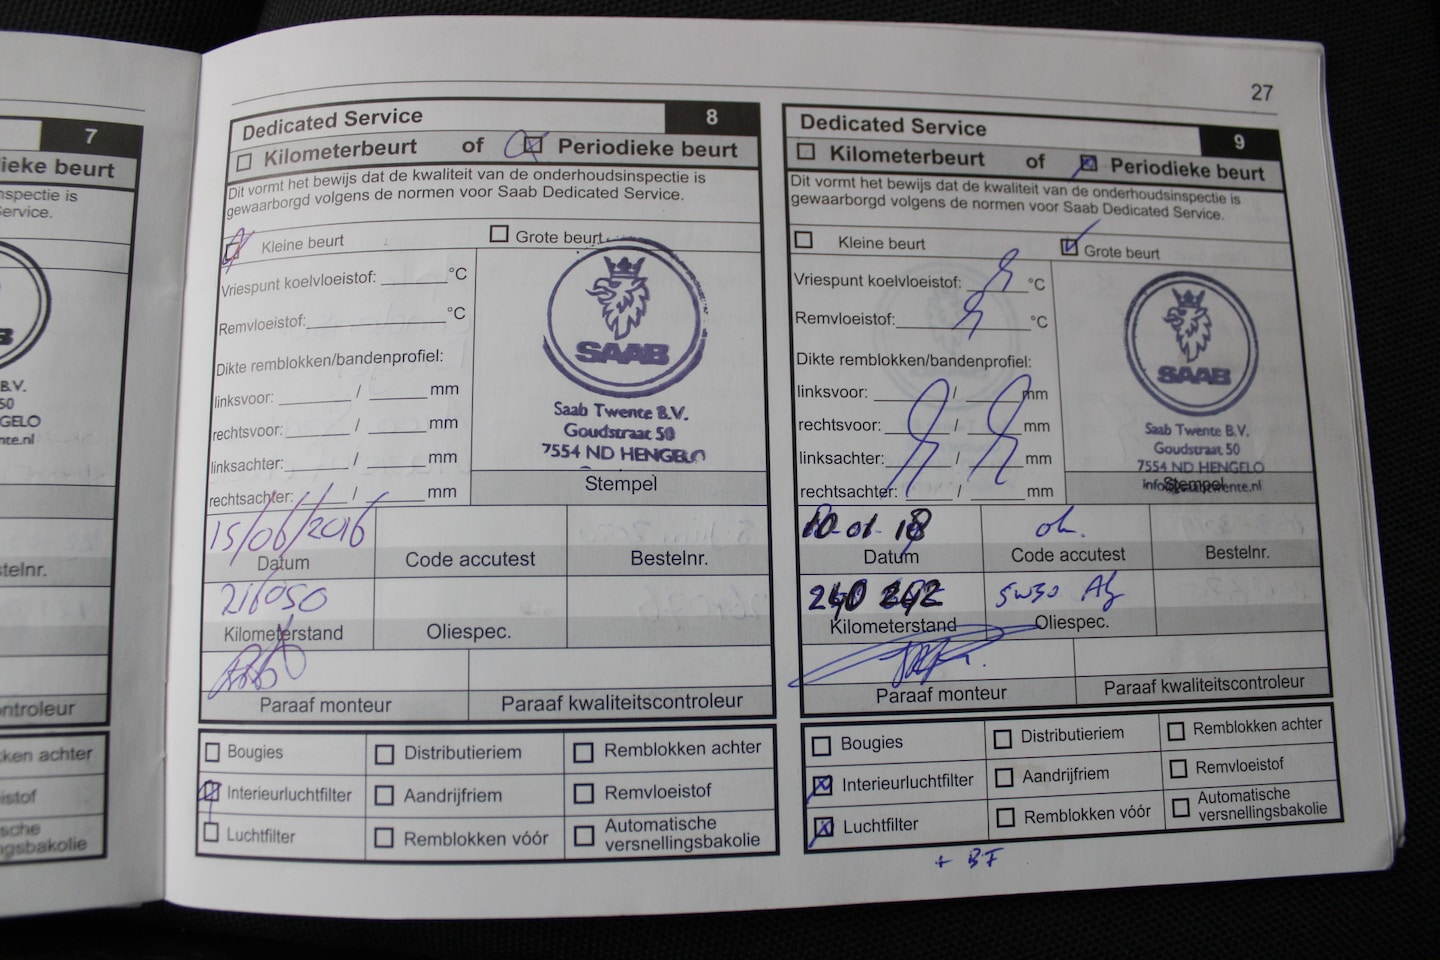 27
7
ieke beurt
nspectie is
ervice.
B.V.
50
NGELO
nte.nl
stelnr.
ontroleur
ken achter
istof
sche
ngsbakolie
Dedicated Service 8
Kilometerbeurt of Periodieke beurt
Dit vormt het bewijs dat de kwaliteit van de onderhoudsinspectie is
gewaarborgd volgens de normen voor Saab Dedicated Service.
Kleine beurt Grote beurt
Vriespunt koelvloeistof: °C
Remvloeistof: °C
Dikte remblokken/bandenprofiel:
linksvoor: / mm
rechtsvoor: / mm
linksachter: / mm
rechtsachter: / mm
SAAB
Saab Twente B.V.
Goudstraat 50
7554 ND HENGELO
Stempel
15/06/2016
Datum Code accutest Bestelnr.
216050
Kilometerstand Oliespec.
Paraaf monteur Paraaf kwaliteitscontroleur
Bougies Distributieriem Remblokken achter
Interieurluchtfilter Aandrijfriem Remvloeistof
Luchtfilter Remblokken vóór Automatische
versnellingsbakolie
Dedicated Service 9
Kilometerbeurt of Periodieke beurt
Dit vormt het bewijs dat de kwaliteit van de onderhoudsinspectie is
gewaarborgd volgens de normen voor Saab Dedicated Service.
Kleine beurt Grote beurt
Vriespunt koelvloeistof: °C
Remvloeistof: °C
Dikte remblokken/bandenprofiel:
linksvoor: / mm
rechtsvoor: / mm
linksachter: / mm
rechtsachter: / mm
SAAB
Saab Twente B.V.
Goudstraat 50
7554 ND HENGELO
Stempel
10-01-18 ok.
Datum Code accutest Bestelnr.
240 242 5W30
Kilometerstand Oliespec.
Paraaf monteur Paraaf kwaliteitscontroleur
Bougies Distributieriem Remblokken achter
Interieurluchtfilter Aandrijfriem Remvloeistof
Luchtfilter Remblokken vóór Automatische
versnellingsbakolie
+ BF